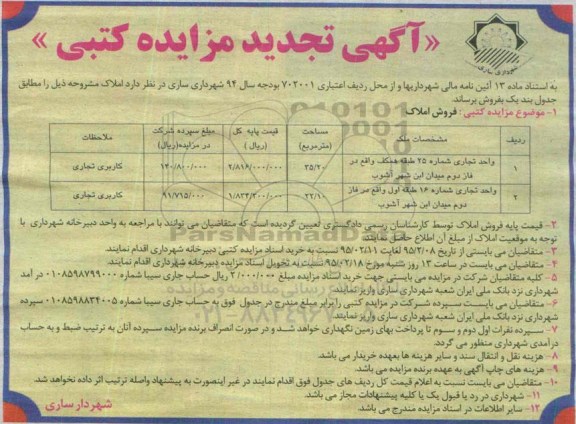 «آگهی تجدید مزایده کتبی»
شهرداری ساری
به استناد ماده ۱۳ آئین نامه مالی شهرداریها و از محل ردیف اعتباری ۷۰۲۰۰۱ بودجه سال ۹۴ شهرداری ساری در نظر دارد املاک مشروحه ذیل را مطابق
جدول بند یک بفروش برساند.
۱- موضوع مزایده کتبی: فروش املاک
ردیف مشخصات ملک مساحت (مترمربع) قیمت پایه کل (ریال) مبلغ سپرده شرکت در مزایده(ریال) ملاحظات
۱ واحد تجاری شماره ۲۵ طبقه همکف واقع در فاز دوم میدان ابن شهر آشوب ۳۵/۲۰ ۲/۸۱۶/۰۰۰/۰۰۰ ۱۴۰/۸۰۰/۰۰۰ کاربری تجاری
۲ واحد تجاری شماره ۱۶ طبقه اول واقع در فاز دوم میدان ابن شهر آشوب ۲۲/۱۰ ۱/۸۳۴/۳۰۰/۰۰۰ ۹۱/۷۱۵/۰۰۰ کاربری تجاری
۲- قیمت پایه فروش املاک توسط کارشناسان رسمی دادگستری تعیین گردیده است که متقاضیان می توانند با مراجعه به واحد دبیرخانه شهرداری با
توجه به موقعیت املاک از مبلغ آن اطلاع حاصل نمایند.
۳- متقاضیان می بایستی از تاریخ ۹۵/۲/۰۸ لغایت ۹۵/۰۲/۱۱ نسبت به خرید اسناد مزایده کتبی دبیرخانه شهرداری اقدام نمایند.
۴- متقاضیان می بایست در ساعت ۱۳ روز شنبه مورخ ۹۵/۰۲/۱۸ نسبت به تحویل اسناد مزایده دبیرخانه شهرداری اقدام نمایند.
۵- کلیه متقاضیان شرکت در مزایده می بایستی جهت خرید اسناد مزایده مبلغ ۲/۰۰۰/۰۰۰ ریال حساب جاری سیبا شماره ۰۱۰۸۵۹۸۷۹۹۰۰۰ در آمد
شهرداری نزد بانک ملی ایران شعبه شهرداری ساری واریز نمایند.
۶- متقاضیان می بایست سپرده شرکت در مزایده کتبی را برابر مبلغ مندرج در جدول فوق به حساب جاری سیبا شماره ۰۱۰۸۵۹۸۸۳۴۰۰۵ سپرده
شهرداری نزد بانک ملی ایران شعبه شهرداری ساری واریز نمایند.
۷- سپرده نفرات اول دوم و سوم تا پرداخت بهای زمین نگهداری خواهد شد و در صورت انصراف برنده مزایده سپرده آنان به ترتیب ضبط و به حساب
درآمدی شهرداری منظور می گردد.
۸- هزینه نقل و انتقال سند و سایر هزینه ها بعهده خریدار می باشد.
۹- هزینه های چاپ آگهی به عهده برنده مزایده می باشد.
۱۰- متقاضیان می بایست نسبت به اعلام قیمت کل ردیف های جدول فوق اقدام نمایند در غیر اینصورت به پیشنهاد واصله ترتیب اثر داده نخواهد شد.
۱۱- شهرداری در رد یا قبول یک یا کلیه پیشنهادات مجاز می باشد.
۱۲- سایر اطلاعات در اسناد مزایده مندرج می باشد.
شهردار ساری
ParsNamadData